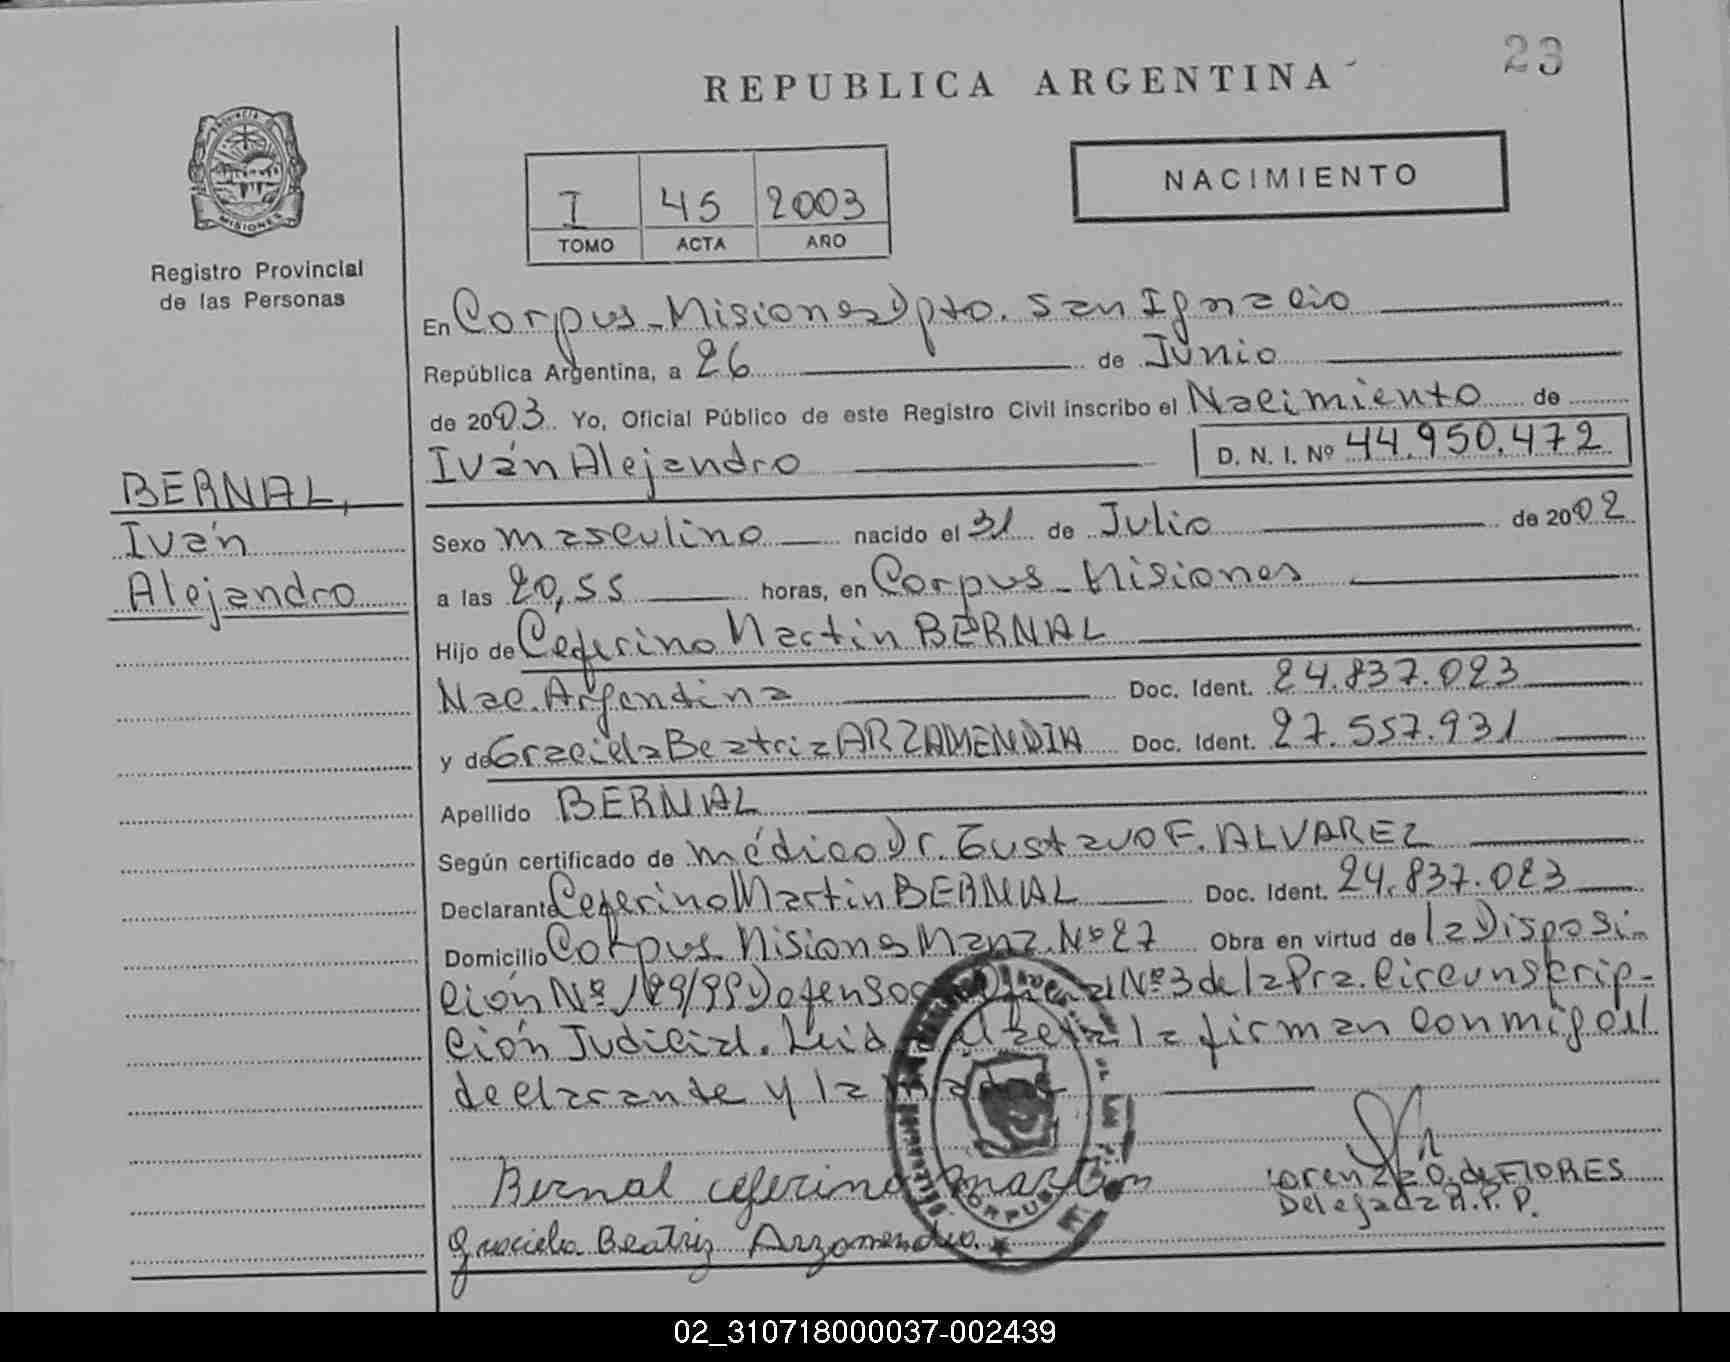 23
REPUBLICA ARGENTINA
PROVINCIA DE
MISIONES
Registro Provincial
de las Personas
NACIMIENTO
I 45 2003
TOMO ACTA AÑO
En Corpus - Misiones Dpto. San Ignacio
República Argentina, a 26 de Junio
de 2003. Yo, Oficial Público de este Registro Civil inscribo el Nacimiento de
Iván Alejandro D. N. I. Nº 44.950.472
BERNAL,
Iván
Alejandro
Sexo masculino nacido el 31 de Julio de 2002
a las 20,55 horas, en Corpus - Misiones
Hijo de Ceferino Martin BERNAL
Nac. Argentina Doc. Ident. 24.837.023
y de Graciela Beatriz ARZAMENDIA Doc. Ident. 27.557.931
Apellido BERNAL
Según certificado de médico Dr. Gustavo F. ALVAREZ
Declarante Ceferino Martin BERNAL Doc. Ident. 24.837.023
Domicilio Corpus Misiones Manz. Nº 27 Obra en virtud de la Disposi-
ción Nº /99 Defensoría Oficial Nº 3 de la Pra. Circunscrip-
ción Judicial. Leida el acta la firman conmigo el
declarante y la madre
Bernal ceferino martin
Graciela Beatriz Arzamendia.
Lorenza O. de FLORES
Delegada R.P.P.
CORPUS
02_310718000037-002439